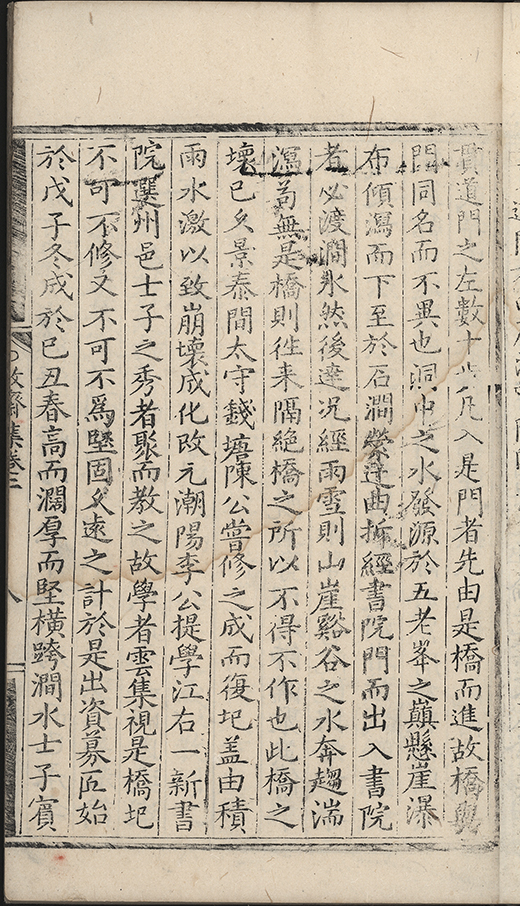 貫道門之左數十步凡入是門者先由是橋而進故橋與
門同名而不異也洞中之水發源於五老峯之巔懸崖瀑
布傾瀉而下至於石澗縈迂曲折經書院門而出入書院
者必渡澗水然後達况經雨雪則山崖谿谷之水奔趨湍
瀉苟無是橋則徃来隔絶橋之所以不得不作也此橋之
壞已久景泰間太守錢塘陳公嘗修之成而復圮盖由積
雨水激以致崩壞成化改元潮陽李公提學江右一新書
院選州邑士子之秀者聚而教之故學者雲集視是橋圮
不可不修又不可不爲堅固久遠之計於是出資募匠始
於戊子冬成於己丑春高而濶厚而堅横跨澗水士子賓
敬齋集卷二
八